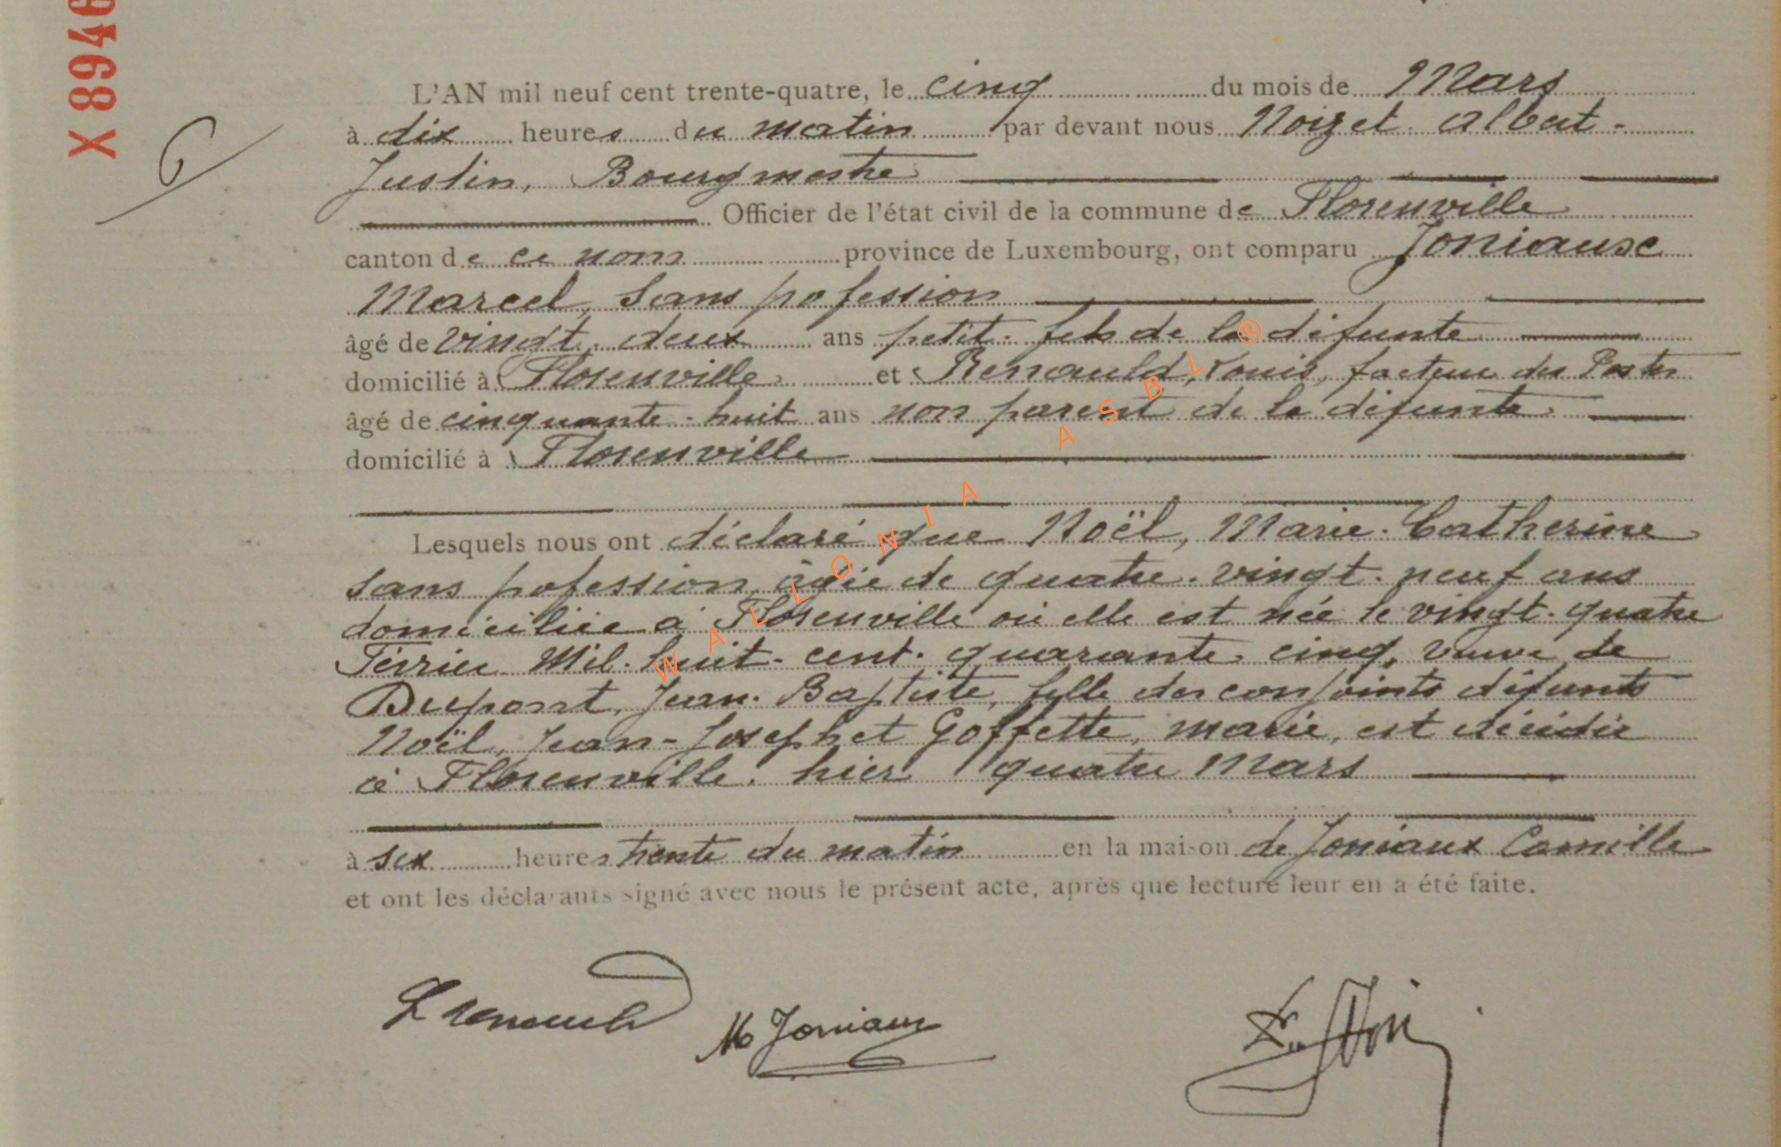 X 8946
6
L'AN mil neuf cent trente-quatre, le cinq du mois de Mars
à dix heures du matin par devant nous Noizet Albert-
Justin, Bourgmestre
Officier de l'état civil de la commune de Florenville
canton de ce nom province de Luxembourg, ont comparu Joniaux
Marcel, sans pofession
âgé de vingt-deux ans petit-fils de la défunte
domicilié à Florenville et Renauld, Louis, facteur des Postes
âgé de cinquante-huit ans non parent de la défunte
domicilié à Florenville
Lesquels nous ont déclaré que Noël, Marie-Catherine
sans pofession, âgée de quatre-vingt-neuf ans
domiciliée à Florenville où elle est née le vingt-quatre
Février Mil-huit-cent-quarante cinq, veuve de
Dupont, Jean-Baptiste, fille des conjoints défunts
Noël, Jean-Joseph et Goffette, Marie, est décédée
à Florenville hier quatre Mars
à six heures trente du matin en la maison de Joniaux Camille
et ont les déclarants signé avec nous le présent acte, après que lecture leur en a été faite.
L Renauld M Joniaux
WALLONIA ASBL ®